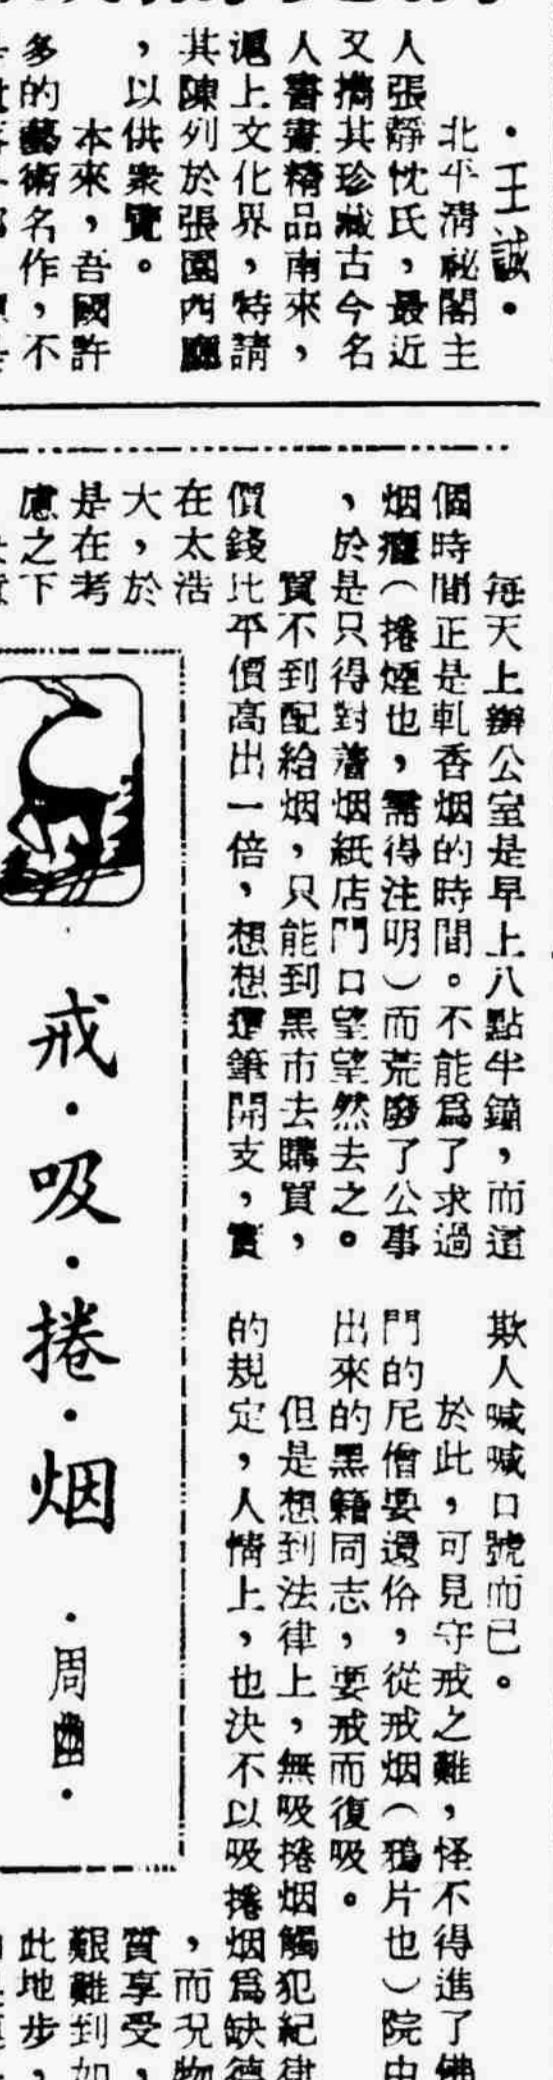 ·王誠·
北平清祕閣主
人張靜忱氏，最近
又攜其珍藏古今名
人書畫精品南來，
滬上文化界，特請
其陳列於張園西廳
，以供衆覽。
本來，吾國許
多的藝術名作，不
每天上辦公室是早上八點半鐘，而這
個時間正是軋香烟的時間。不能爲了求過
烟癮（捲煙也，需得注明）而荒廢了公事
，於是只得對着烟紙店門口望望然去之。
買不到配給烟，只能到黑市去購買，
價錢比平價高出一倍，想想這筆開支，實
在太浩
大，於
是在考
慮之下
戒·吸·捲·烟
·周幽·
欺人喊喊口號而已。
於此，可見守戒之難，怪不得進了佛
門的尼僧要還俗，從戒烟（鴉片也）院中
出來的黑籍同志，要戒而復吸。
但是想到法律上，無吸捲烟觸犯紀律
的規定，人情上，也決不以吸捲烟爲缺德
，而况物
質享受，
艱難到如
此地步，